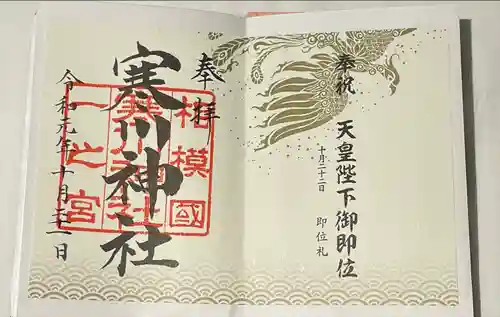 奉祝 天皇陛下御即位
十月二十二日 即位礼
奉拝
寒川神社
相模國
寒川神社
一之宮
令和元年十月二十二日